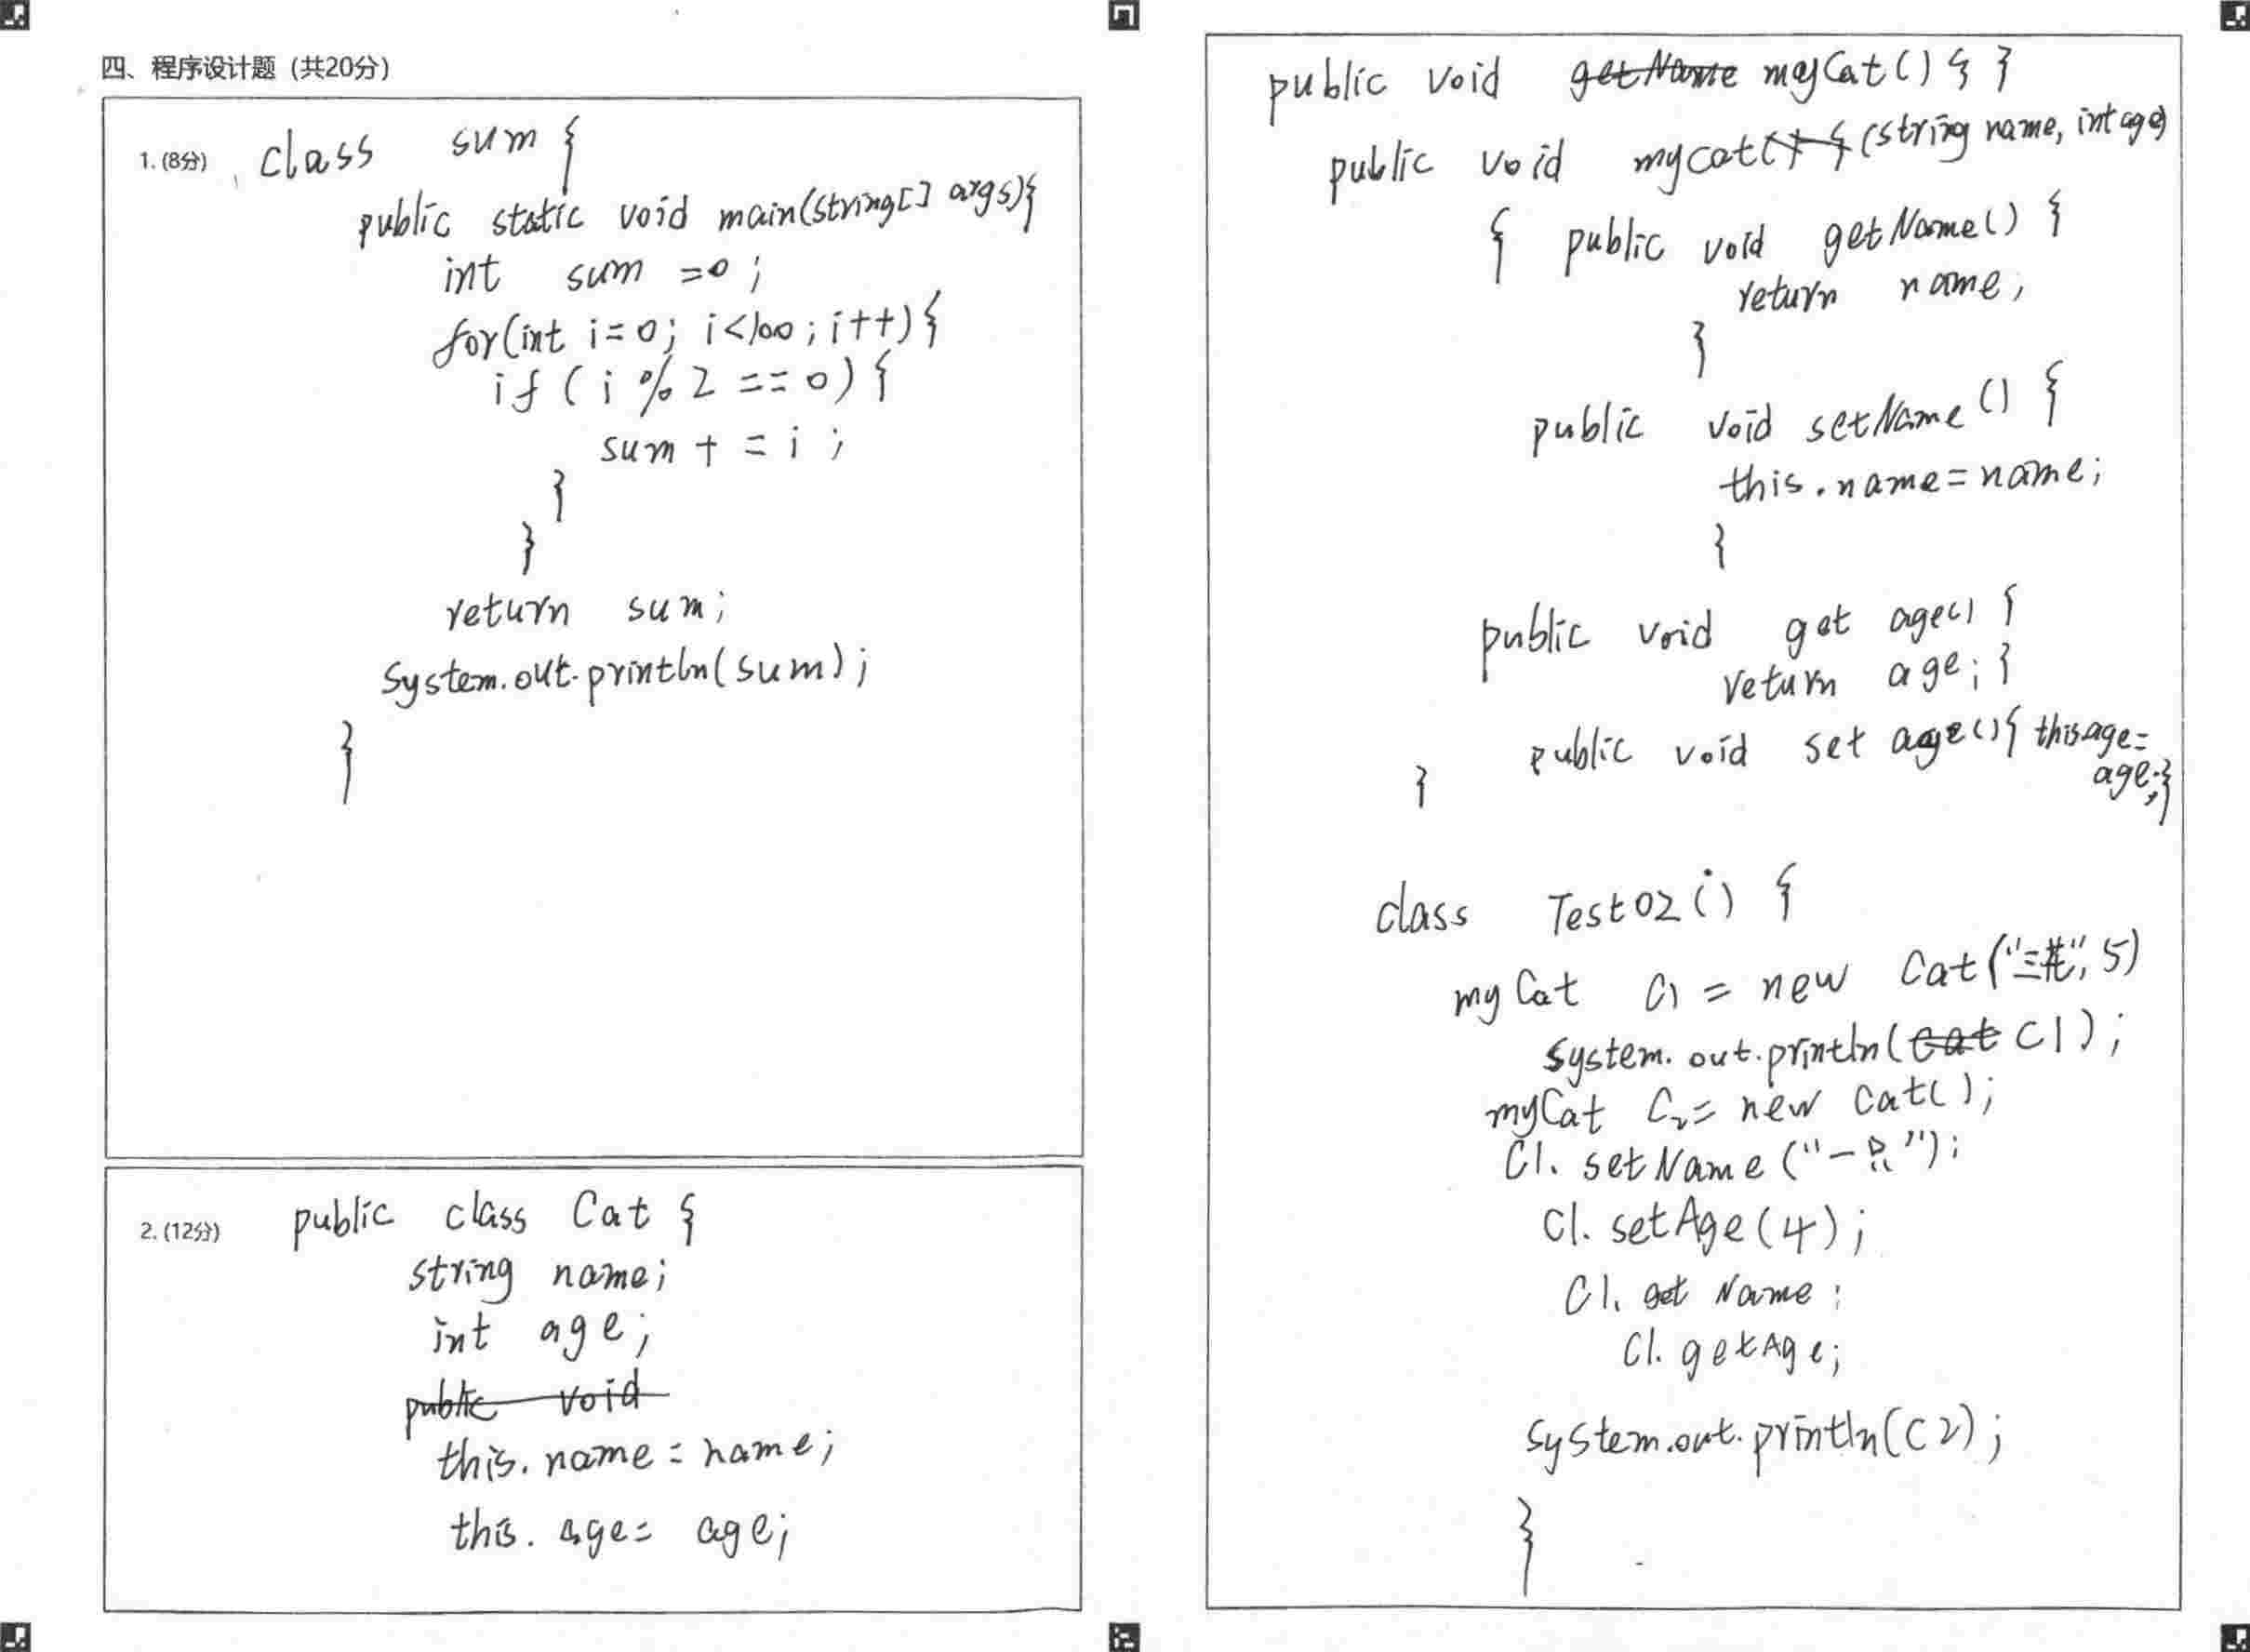 四、程序设计题（共20分）
1. (8分) class sum {
public static void main(string[] args){
int sum =0;
for(int i=0; i<100; i++){
if ( i % 2 == 0) {
sum + = i ;
}
}
return sum;
system.out.println(sum);
}
2. (12分) public class Cat {
string name;
int age;
public void
this. name = name;
this. age = age;
public void getName myCat() { }
public void mycat() { (string name, int age)
{ public void getName() {
return name,
}
public void setName() {
this.name=name;
}
public void get age() {
return age; }
public void set age(){ this age=
age;}
}
class Test02() {
my Cat C1 = new Cat("三花", 5)
system. out.println(Cat C1);
myCat C2= new cat();
C1. setName ("一只");
C1. setAge (4);
C1. get Name ;
C1. getAge;
system.out.println(C2);
}